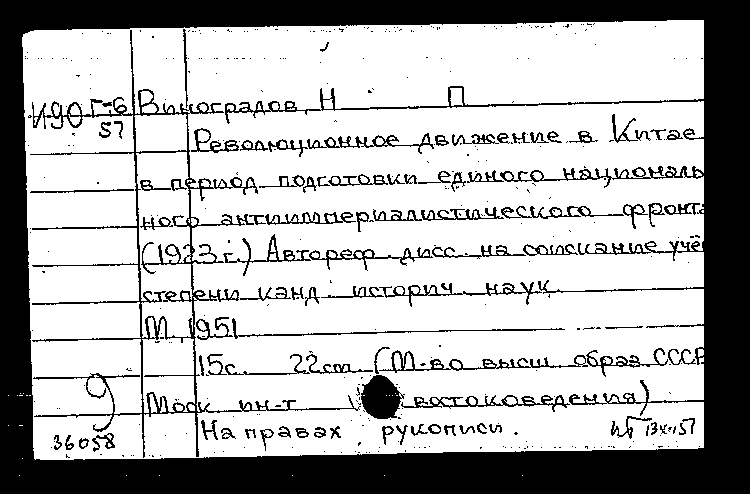 И90 Г-6 Виноградов, Н П
57
Революционное движение в Китае
в период подготовки единого националь
ного антиимпериалистического фронта
(1923 г.) Автореф. дисс. на соискание учён
степени канд. историч. наук.
М, 1951
15с. 22см (М-во высш. образ. СССР
9 Моск ин-т востоковедения)
36058 На правах рукописи.
57